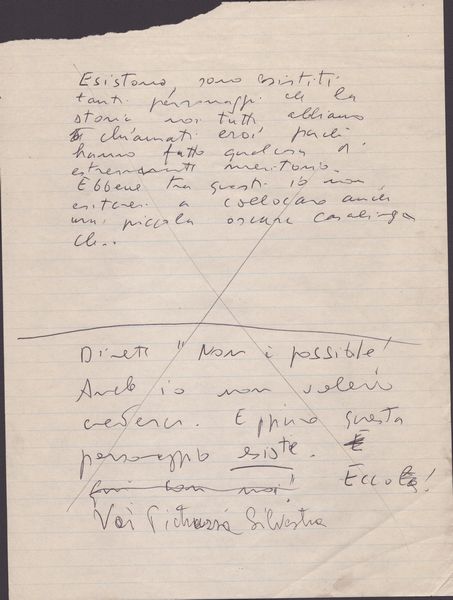 Esistono, sono esistiti
tanti personaggi che la
storia noi tutti abbiamo
chiamati eroi perché
hanno fatto qualcosa di
estremamente meritorio.
Ebbene tra questi io non
esiterei a collocare anche
una piccola oscura casalinga
che..
Direte "Non è possibile!
Anch io non volevo
crederci. Eppure questa
personaggio esiste.
qui con noi". Eccola!
Voi Silvestra